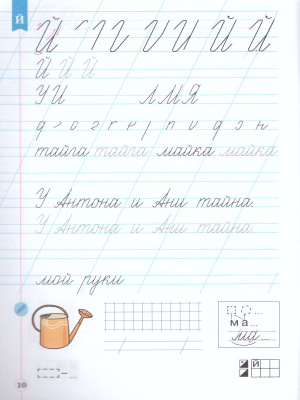 Й
Й Й Й
Й Й Й
УИ ЛМЯ
тайга тайга майка майка
У Антона и Ани тайна.
У Антона и Ани тайна.
мой руки
ма...
ма...
Й
10